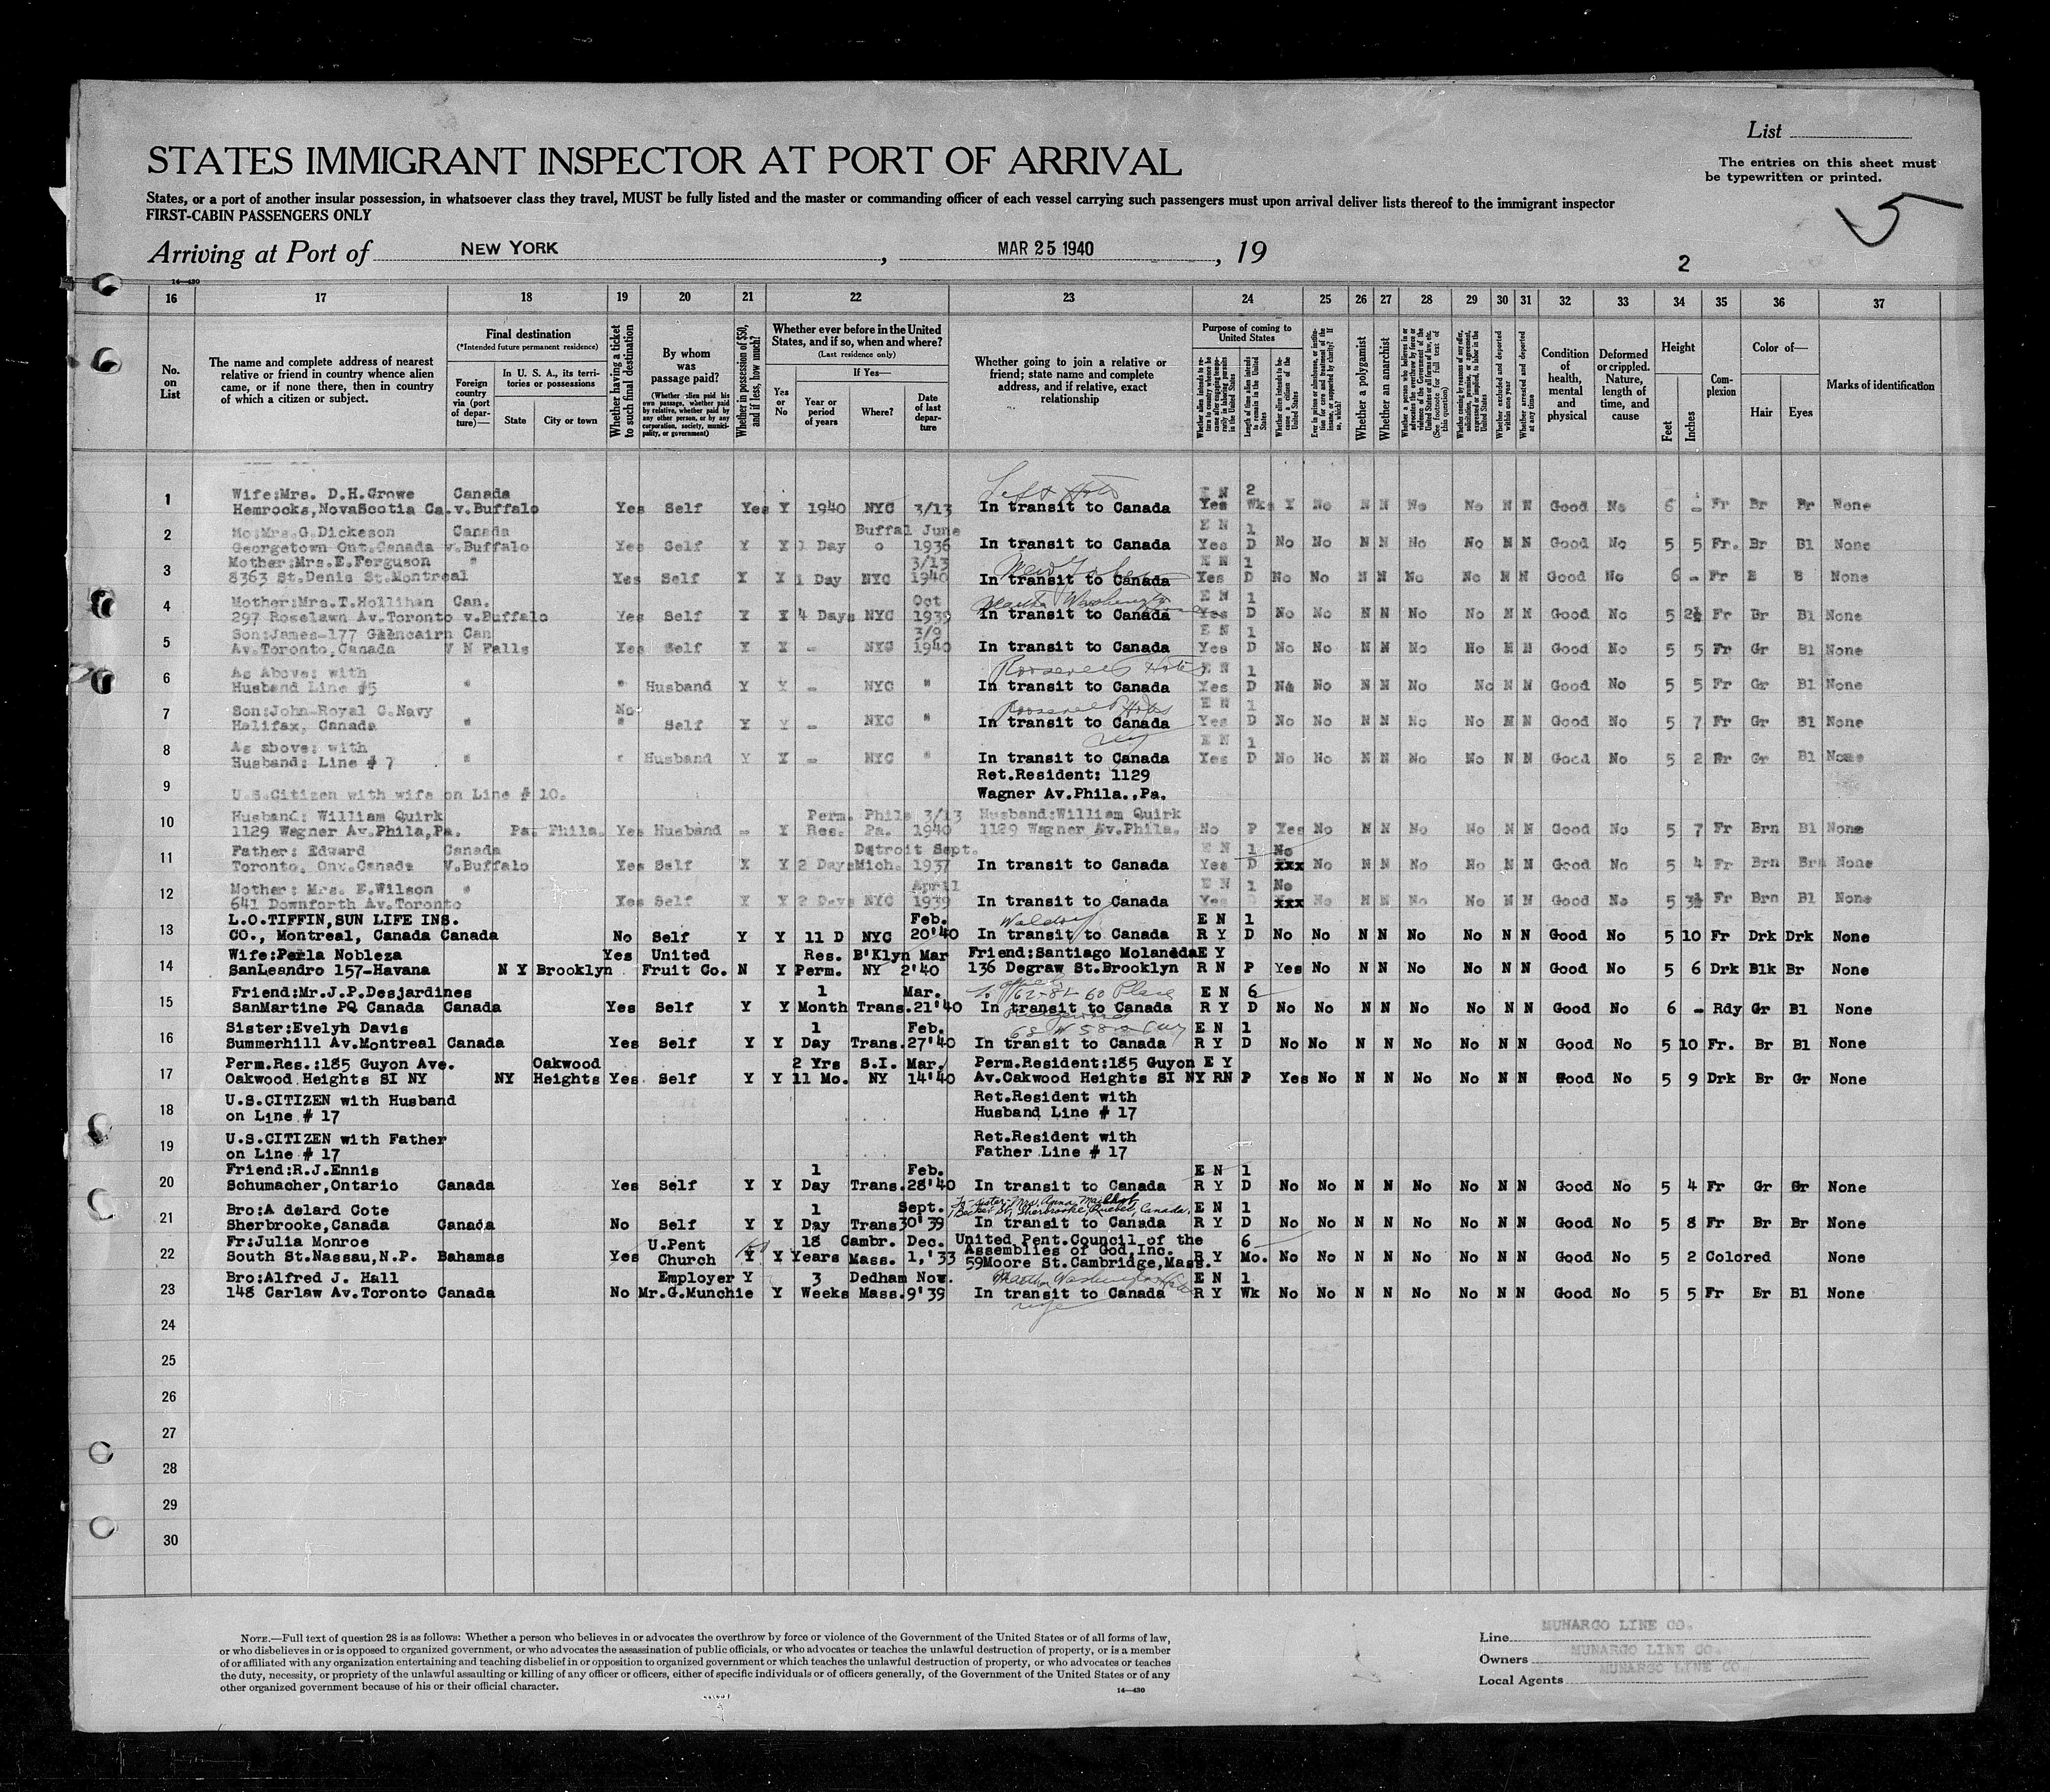 List
STATES IMMIGRANT INSPECTOR AT PORT OF ARRIVAL
The entries on this sheet must
be typewritten or printed.
States, or a port of another insular possession, in whatsoever class they travel, MUST be fully listed and the master or commanding officer of each vessel carrying such passengers must upon arrival deliver lists thereof to the immigrant inspector
FIRST-CABIN PASSENGERS ONLY
5
Arriving at Port of NEW YORK, MAR 25 1940, 19
2
14—430
16 17 18 19 20 21 22 23 24 25 26 27 28 29 30 31 32 33 34 35 36 37
No. on List
The name and complete address of nearest relative or friend in country whence alien came, or if none there, then in country of which a citizen or subject.
Final destination
(*Intended future permanent residence)
Foreign country via (port of departure)—
In U. S. A., its territories or possessions
State
City or town
Whether having a ticket to such final destination
By whom was passage paid?
(Whether alien paid his own passage, whether paid by relative, whether paid by any other person, or by any corporation, society, municipality, or government)
Whether in possession of $50, and if less, how much?
Whether ever before in the United States, and if so, when and where?
(Last residence only)
Yes or No
If Yes—
Year or period of years
Where?
Date of last departure
Whether going to join a relative or friend; state name and complete address, and if relative, exact relationship
Purpose of coming to United States
Length of time alien intends to remain in the United States
Whether alien intends to become a citizen of the United States
Whether a polygamist
Whether an anarchist
Whether excluded and deported within one year
Whether arrested and deported at any time
Condition of health, mental and physical
Deformed or crippled. Nature, length of time, and cause
Height
Feet
Inches
Complexion
Color of—
Hair
Eyes
Marks of identification
Wife:Mrs. D.H.Crowe Canada E N 2
1 Hemrocks,NovaScotia Ca.v.Buffalo Yes Self Yes Y 1940 NYC 3/13 In transit to Canada Yes Wks Y No N N No No N N Good No 6 - Fr Br Br None
Mo:Mrs.G.Dickeson Canada Buffal June E N 1
2 Georgetown Ont.Canada v.Buffalo Yes Self Y Y 1 Day o 1936 In transit to Canada Yes D No No N N No No N N Good No 5 5 Fr. Br Bl None
Mother:Mrs.E.Ferguson " 3/13 E N 1
3 8363 St.Denis St.Montreal Yes Self Y Y 1 Day NYC 1940 In transit to Canada Yes D No No N N No No N N Good No 6 - Fr B B None
Mother:Mrs.T.Hollihan Can. Oct Martha Washington E N 1
4 297 Roselawn Av.Toronto v.Buffalo Yes Self Y Y 4 Days NYC 1939 In transit to Canada Yes D No No N N No No N N Good No 5 2½ Fr Br Bl None
Son:James-177 Glencairn Can 3/9 E N 1
5 Av.Toronto,Canada V N Falls Yes Self Y Y - NYC 1940 In transit to Canada Yes D No No N N No No N N Good No 5 5 Fr Gr Bl None
As Above: with Roosevelt Hotel E N 1
6 Husband Line #5 " " Husband Y Y - NYC " In transit to Canada Yes D No No N N No No N N Good No 5 5 Fr Gr Bl None
Son:John-Royal C.Navy No Roosevelt Hotel E N 1
7 Halifax, Canada " " Self Y Y - NYC " In transit to Canada Yes D No No N N No No N N Good No 5 7 Fr Gr Bl None
As above: with E N 1
8 Husband: Line # 7 " " Husband Y Y - NYC " In transit to Canada Yes D No No N N No No N N Good No 5 2 Fr Gr Bl None
Ret.Resident: 1129
9 U.S.Citizen with wife on Line # 10. Wagner Av.Phila.,Pa.
Husband: William Quirk Perm. Phila 3/13 Husband:William Quirk
10 1129 Wagner Av.Phila,Pa. Pa. Phila. Yes Husband - Y Res. Pa. 1940 1129 Wagner Av.Phila. No P Yes No N N No No N N Good No 5 7 Fr Brn Bl None
Father: Edward Canada Detroit Sept. E N 1 No
11 Toronto, Ont.Canada V.Buffalo Yes Self Y Y 2 Days Mich. 1937 In transit to Canada Yes D xxx No N N No No N N Good No 5 4 Fr Brn Brn None
Mother: Mrs. E.Wilson " April E N 1 No
12 641 Downforth Av.Toronto Yes Self Y Y 2 Days NYC 1939 In transit to Canada Yes D xxx No N N No No N N Good No 5 3½ Fr Brn Bl None
L.O.TIFFIN,SUN LIFE INS. Feb. Waldorf E N 1
13 CO., Montreal, Canada Canada No Self Y Y 11 D NYC 20'40 In transit to Canada R Y D No No N N No No N N Good No 5 10 Fr Drk Drk None
Wife:Perla Nobleza Yes United Res. B'Klyn Mar Friend:Santiago Molaneda E Y
14 SanLeandro 157-Havana N Y Brooklyn Fruit Co. N Y Perm. NY 2'40 136 Degraw St.Brooklyn R N P Yes No N N No No N N Good No 5 6 Drk Blk Br None
Friend:Mr.J.P.Desjardines 1 Mar. 62-82 60 Place E N 6
15 SanMartine PQ Canada Canada Yes Self Y Y Month Trans. 21'40 In transit to Canada R Y D No No N N No No N N Good No 6 - Rdy Gr Bl None
Sister:Evelyn Davis 1 Feb. E N 1
16 Summerhill Av.Montreal Canada Yes Self Y Y Day Trans. 27'40 In transit to Canada R Y D No No N N No No N N Good No 5 10 Fr. Br Bl None
Perm.Res.:185 Guyon Ave. Oakwood 2 Yrs S.I. Mar. Perm.Resident:185 Guyon E Y
17 Oakwood Heights SI NY NY Heights Yes Self Y Y 11 Mo. NY 14'40 Av.Oakwood Heights SI NY RN P Yes No N N No No N N Good No 5 9 Drk Br Gr None
U.S.CITIZEN with Husband Ret.Resident with
18 on Line # 17 Husband Line # 17
U.S.CITIZEN with Father Ret.Resident with
19 on Line # 17 Father Line # 17
Friend:R.J.Ennis 1 Feb. E N 1
20 Schumacher,Ontario Canada Yes Self Y Y Day Trans. 28'40 In transit to Canada R Y D No No N N No No N N Good No 5 4 Fr Gr Gr None
Bro:A delard Cote 1 Sept. To sister-Mrs. Anna E N 1
Sherbrooke, Quebec, Canada.
21 Sherbrooke,Canada Canada No Self Y Y Day Trans 30'39 In transit to Canada R Y D No No N N No No N N Good No 5 8 Fr Br Br None
Fr:Julia Monroe U.Pent 18 Cambr. Dec. United Pent.Council of the 6
Assemblies of God,Inc.
22 South St.Nassau,N.P. Bahamas Yes Church Y Y Years Mass. 1,'33 59Moore St.Cambridge,Mass. R Y Mo. No No N N No No N N Good No 5 2 Colored None
Bro:Alfred J. Hall Employer Y 3 Dedham Nov. Martha Washington E N 1
23 148 Carlaw Av.Toronto Canada No Mr.G.Munchie Y Weeks Mass. 9'39 In transit to Canada R Y Wk No No N N No No N N Good No 5 5 Fr Br Bl None
24
25
26
27
28
29
30
NOTE.—Full text of question 28 is as follows: Whether a person who believes in or advocates the overthrow by force or violence of the Government of the United States or of all forms of law,
or who disbelieves in or is opposed to organized government, or who advocates the assassination of public officials, or who advocates or teaches the unlawful destruction of property, or is a member
of or affiliated with any organization entertaining and teaching disbelief in or opposition to organized government or which teaches the unlawful destruction of property, or who advocates or teaches
the duty, necessity, or propriety of the unlawful assaulting or killing of any officer or officers, either of specific individuals or of officers generally, of the Government of the United States or of any
other organized government because of his or their official character.
14—430
Line MUNARGO LINE CO.
Owners MUNARGO LINE CO.
Local Agents MUNARGO LINE CO.